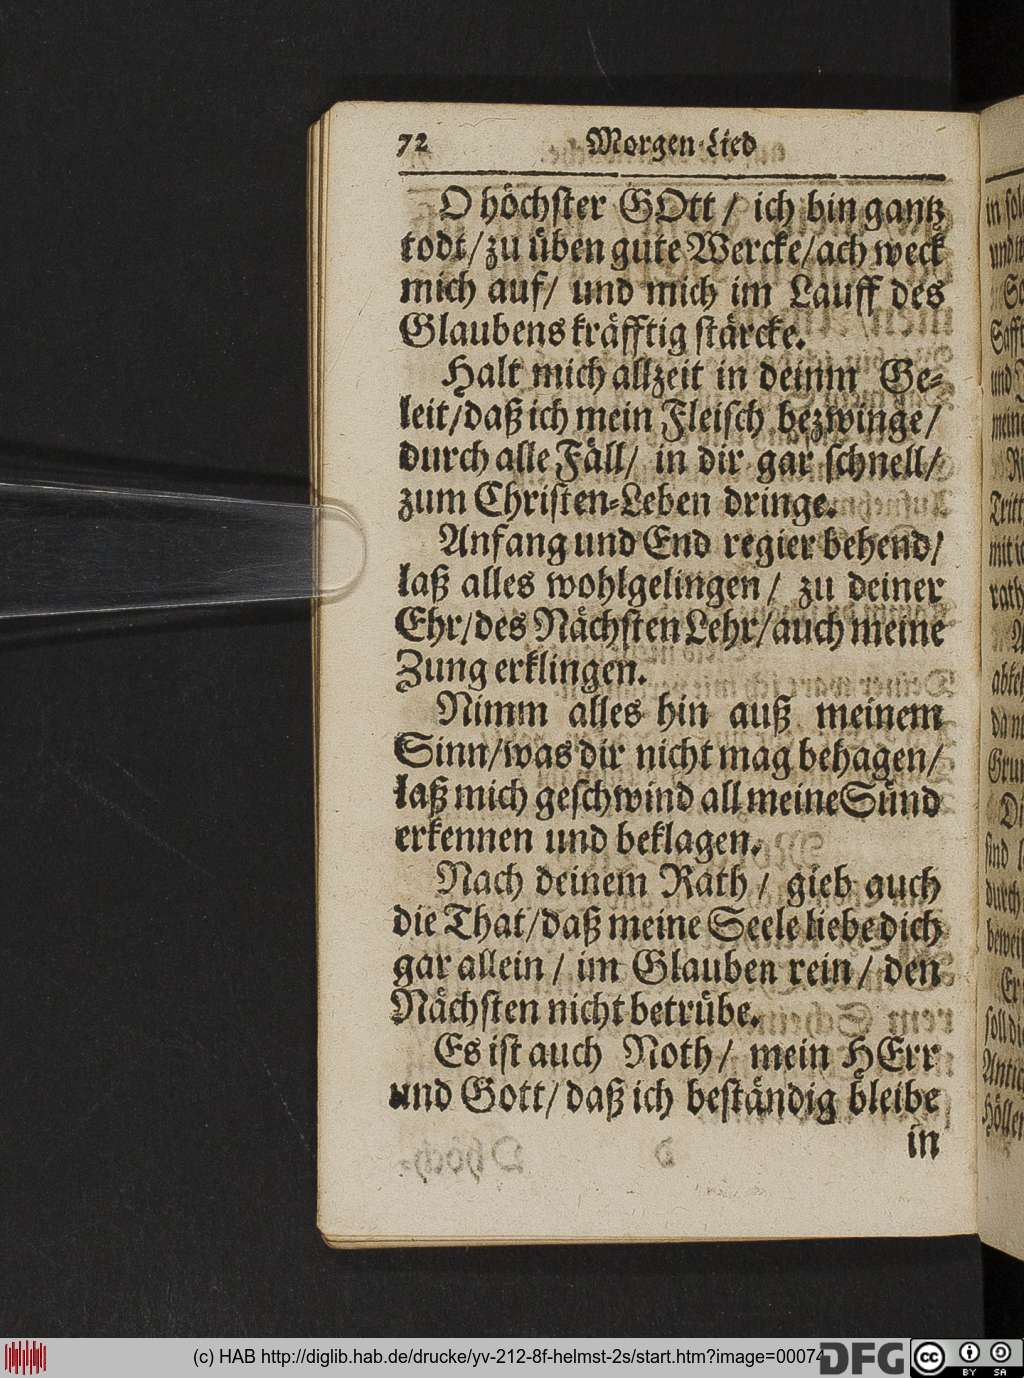 72 Morgen-Lied
O höchster GOtt / ich bin gantz
todt / zu üben gute Wercke / ach weck
mich auf / und mich im Lauff des
Glaubens kräfftig stärcke.
Halt mich allzeit in deinm Ge-
leit / daß ich mein Fleisch bezwinge /
durch alle Fäll / in dir gar schnell /
zum Christen-Leben dringe.
Anfang und End regier behend /
laß alles wohlgelingen / zu deiner
Ehr / des Nächsten Lehr / auch meine
Zung erklingen.
Nimm alles hin auß meinem
Sinn / was dir nicht mag behagen /
laß mich geschwind all meine Sünd
erkennen und beklagen.
Nach deinem Rath / gieb auch
die That / daß meine Seele liebe dich
gar allein / im Glauben rein / den
Nächsten nicht betrübe.
Es ist auch Noth / mein HErr
und Gott / daß ich beständig bleibe
in
(c) HAB http://diglib.hab.de/drucke/yv-212-8f-helmst-2s/start.htm?image=00074
DFG
cc BY SA